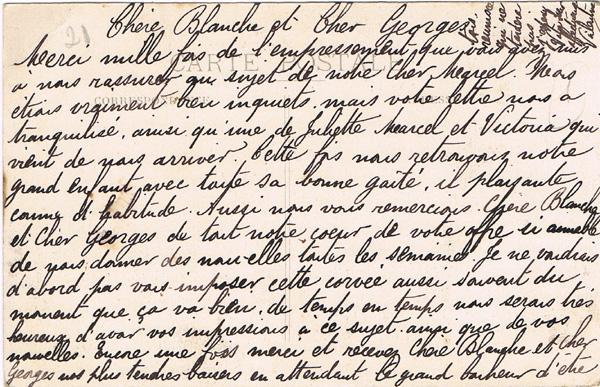 21
Chère Blanche et Cher Georges
Merci mille fois de l'empressement que vous avez mis
à nous rassurer au sujet de notre Cher Marcel. Nous
CARTE POSTALE
étions vraiment bien inquiets, mais votre lettre nous a
CORRESPONDANCE
tranquilisé, ainsi qu'une de Juliette Marcel et Victoria qui
vient de nous arriver. Cette fois nous retrouvons notre
grand enfant avec toute sa bonne gaîté, il plaisante
comme d'habitude. Aussi nous vous remercions Chère Blanche
et Cher Georges de tout notre coeur de votre offre si aimable
de nous donner des nouvelles toutes les semaines. Je ne voudrais
d'abord pas vous imposer cette corvée aussi souvent du
moment que ça va bien, de temps en temps nous serons très
heureux d'avoir vos impressions à ce sujet ainsi que de vos
nouvelles. Encore une fois merci et recevez Chère Blanche et Cher
Georges nos plus tendres baisers en attendant le grand bonheur d'être